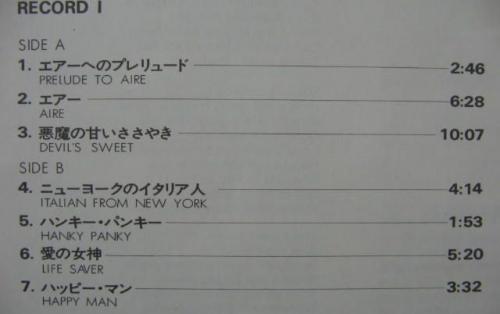 RECORD I
SIDE A
1. エアーへのプレリュード 2:46
PRELUDE TO AIRE
2. エアー 6:28
AIRE
3. 悪魔の甘いささやき 10:07
DEVIL'S SWEET
SIDE B
4. ニューヨークのイタリア人 4:14
ITALIAN FROM NEW YORK
5. ハンキー・パンキー 1:53
HANKY PANKY
6. 愛の女神 5:20
LIFE SAVER
7. ハッピー・マン 3:32
HAPPY MAN